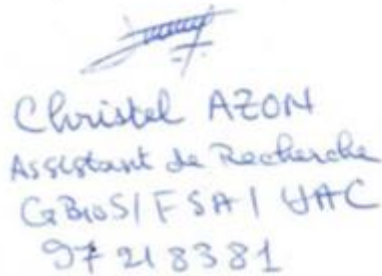 Christel AZON
Assistant de Recherche
GBioS/FSA/UAC
97218381